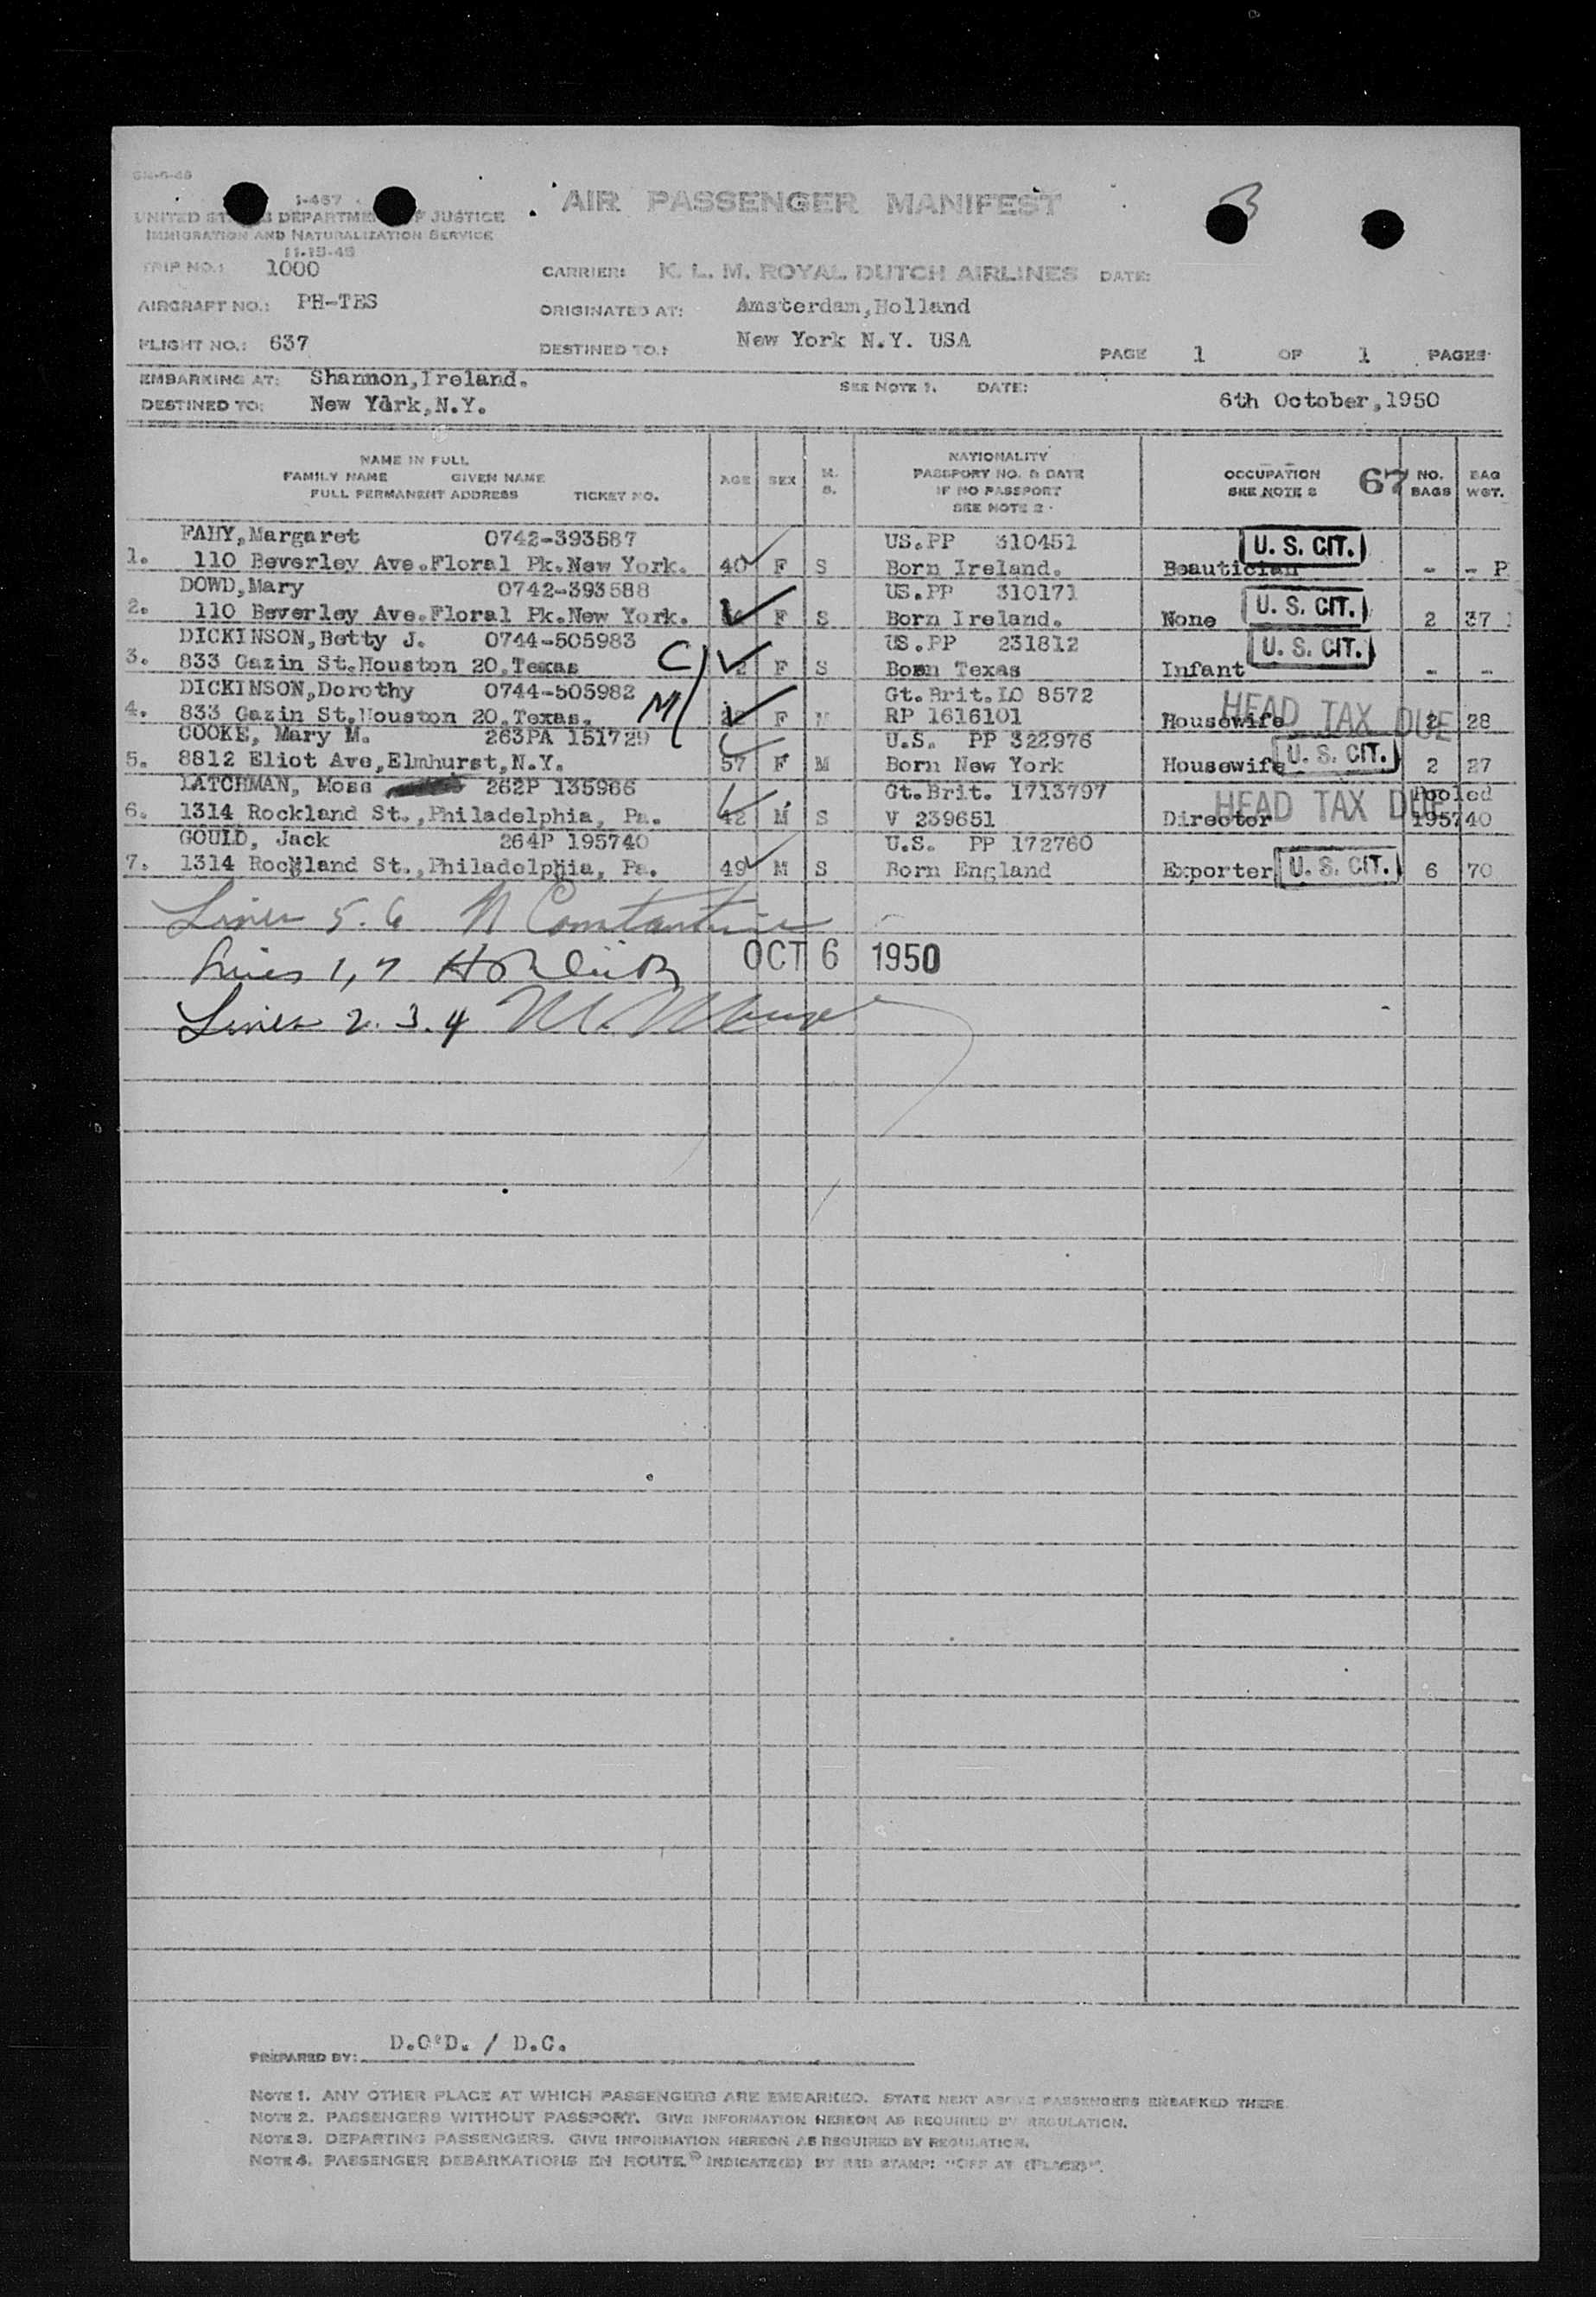 I-467
UNITED ST S DEPARTME OF JUSTICE
IMMIGRATION AND NATURALIZATION SERVICE
11-15-48
AIR PASSENGER MANIFEST
3
TRIP NO.: 1000
CARRIER: K. L. M. ROYAL DUTCH AIRLINES DATE:
AIRCRAFT NO.: PH-TES
ORIGINATED AT: Amsterdam,Holland
FLIGHT NO.: 637
DESTINED TO.: New York N.Y. USA
PAGE 1 OF 1 PAGES
EMBARKING AT: Shannon,Ireland.
SEE NOTE 1. DATE: 6th October,1950
DESTINED TO: New York,N.Y.
NAME IN FULL
FAMILY NAME GIVEN NAME
FULL PERMANENT ADDRESS TICKET NO.
AGE SEX M. S.
NATIONALITY
PASSPORT NO. & DATE
IF NO PASSPORT
SEE NOTE 2
OCCUPATION
SEE NOTE 2
67
NO. BAGS
BAG WGT.
FAHY,Margaret 0742-393587 US.PP 310451 U. S. CIT.
1. 110 Beverley Ave.Floral Pk.New York. 40 F S Born Ireland. Beautician - - P
DOWD,Mary 0742-393588 US.PP 310171 U. S. CIT.
2. 110 Beverley Ave.Floral Pk.New York. F S Born Ireland. None 2 37
DICKINSON,Betty J. 0744-505983 US.PP 231812 U. S. CIT.
3. 833 Gazin St.Houston 20,Texas C 2 F S Born Texas Infant - -
DICKINSON,Dorothy 0744-505982 Gt.Brit.LO 8572 HEAD TAX DUE
4. 833 Gazin St.Houston 20.Texas. M 22 F M RP 1616101 Housewife 2 28
COOKE, Mary M. 263PA 151729 U.S. PP 322976 U. S. CIT.
5. 8812 Eliot Ave,Elmhurst,N.Y. 57 F M Born New York Housewife 2 27
LATCHMAN, Moss 262P 135966 Gt.Brit. 1713797 HEAD TAX DUE Pooled
6. 1314 Rockland St.,Philadelphia, Pa. 42 M S V 239651 Director 195740
GOULD, Jack 264P 195740 U.S. PP 172760 U. S. CIT.
7. 1314 Rockland St.,Philadelphia, Pa. 49 M S Born England Exporter 6 70
Lines 5. 6 N Constantine
Lines 1, 7
OCT 6 1950
Lines 2. 3. 4 M.
PREPARED BY: D.O'D. / D.C.
NOTE 1. ANY OTHER PLACE AT WHICH PASSENGERS ARE EMBARKED. STATE NEXT ABOVE PASSENGERS EMBARKED THERE.
NOTE 2. PASSENGERS WITHOUT PASSPORT. GIVE INFORMATION HEREON AS REQUIRED BY REGULATION.
NOTE 3. DEPARTING PASSENGERS. GIVE INFORMATION HEREON AS REQUIRED BY REGULATION.
NOTE 4. PASSENGER DEBARKATIONS EN ROUTE. INDICATE(D) BY RED STAMP: "OFF AT (PLACE)".